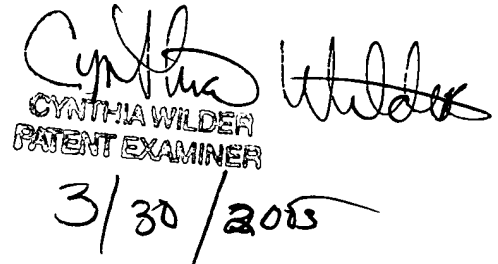 Cynthia Wilder
CYNTHIA WILDER
PATENT EXAMINER
3/30/2005